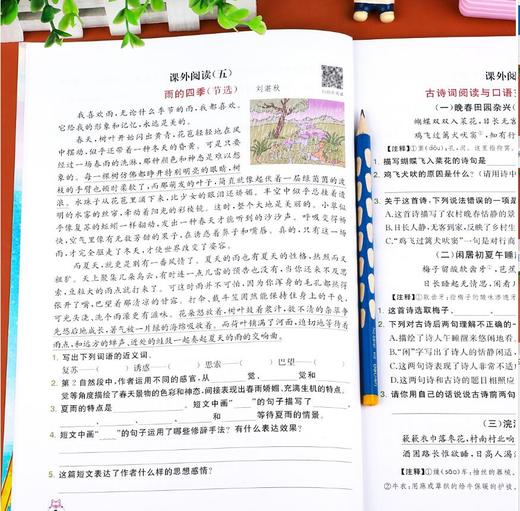 课外阅读（五）
雨的四季（节选）
刘湛秋
我喜欢雨，无论什么季节的雨，我都喜欢。
它给我的形象和记忆，永远是美的。
春天，树叶开始闪出黄青，花苞轻轻地在风
中摆动，似乎还带着一种冬天的昏黄。可是只要
经过一场春雨的洗淋，那种颜色和神态是难以想
象的。每一棵树仿佛都睁开特别明亮的眼睛，树
枝的手臂也顿时柔软了，而那萌发的叶子，简直就像起伏着一层绿茵茵的波
浪。水珠子从花苞里滴下来，比少女的眼泪还娇媚。半空中似乎总挂着透
明的水雾的丝帘，牵动着阳光的彩棱镜。这时，整个大地是美丽的。小草似
乎像复苏的蚯蚓一样翻动，发出一种春天才能听到的沙沙声。呼吸变得畅
快，空气里像有无数芳甜的果子，在诱惑着鼻子和嘴唇。真的，只有这一场
雨，才完全驱走了冬天，才使世界改变了姿容。
而夏天，就更是别有一番风情了。夏天的雨也有夏天的性格，热烈而又
粗犷。天上聚集几朵乌云，有时连一点儿雷的预告也没有，当你还来不及思
索，豆粒大的雨点就打来了。可这时雨并不可怕，因为你浑身的毛孔都热得
张开了嘴，巴望着那清凉的甘露。打伞、戴斗笠固然能保持住身上的干爽，
可光头浇，洗个雨澡更有滋味。花朵怒放着，树叶鼓着浆汁，数不清的杂草争
先恐后地成长，暑气被一片绿的海绵吸收着。而荷叶铺满了河面，迫切地等待着
雨点，和远方的蝉声，近处的蛙鼓一起奏起夏天的雨的交响曲。
1. 写出下列词语的近义词。
复苏——（ ） 诱惑——（ ） 思索——（ ） 巴望——（ ）
2. 第②自然段中，作者运用不同的感官，从____觉、____觉和____
觉等角度描绘了春天景物的色彩和神态，间接表现出春雨娇媚、充满生机的特点。
3. 夏雨的特点是____、____。短文中画“____”的句子描写了____、
____、____、____和____等待夏雨的情景。
4. 短文中画“____”的句子运用了哪些修辞手法？有什么表达效果？
5. 这篇短文表达了作者什么样的思想感情？
古诗词阅读与口语
（一）晚春田园杂兴（
蝴蝶双双入菜花，日长无
鸡飞过篱犬吠窦
1. 描写蝴蝶飞入菜花的诗句是
2. 鸡飞犬吠的原因是什么？
3. 关于这首诗，下列说法错误的一项是
A. 这首诗描写了农村晚春恬静的景
B. 日长人静，无客到家，反映了农
C. “鸡飞过篱犬吠窦”一句是对行商
（二）闲居初夏午睡
梅子留酸软齿牙，芭
日长睡起无情思，闲看
1. 这首诗选取梅子、
2. 下列对古诗后两句理解不正确的一
A. 描绘了诗人午睡醒来悠闲地看
B. “闲”字写出了诗人的恬静闲适，
C. 古诗后两句表现了诗人午睡
D. 这两句诗和古诗的题目相照应
3. 请你用自己的话说说古诗前两句
（三）浣
簌簌衣巾落枣花，村南村北响
酒困路长惟欲睡，日高人渴